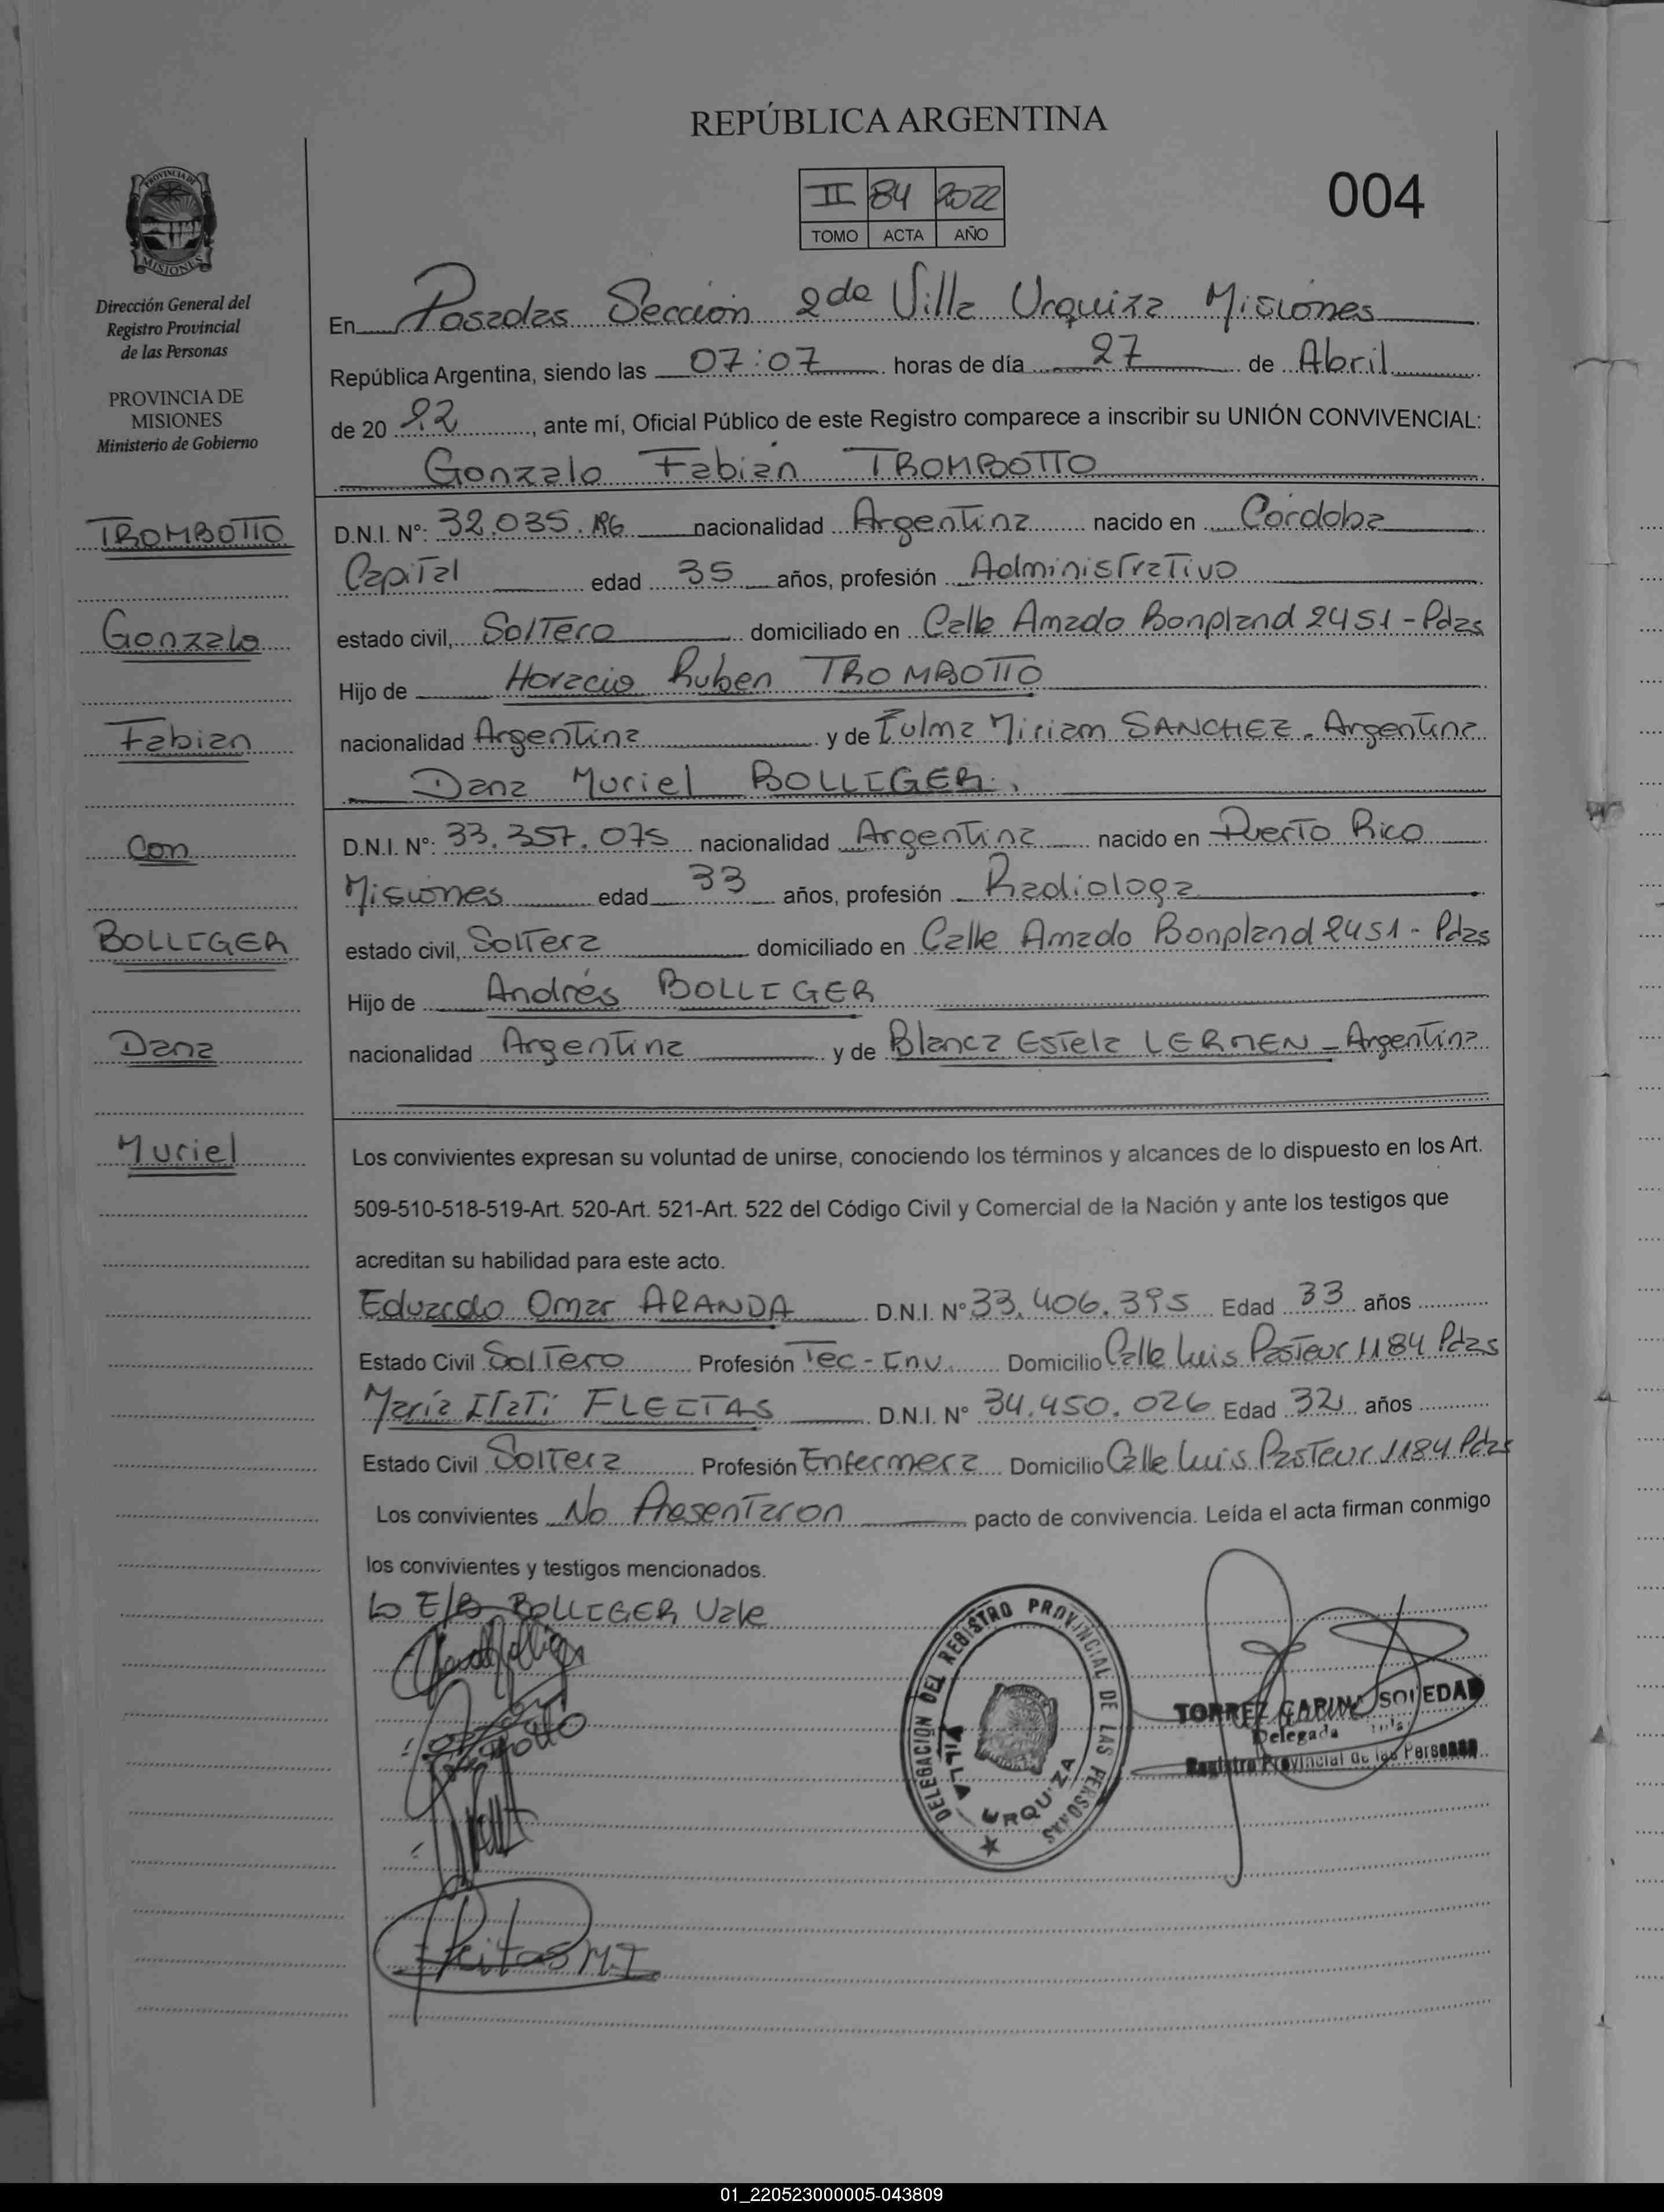 REPÚBLICA ARGENTINA
II 84 2022
TOMO ACTA AÑO
004
PROVINCIA DE
MISIONES
Dirección General del
Registro Provincial
de las Personas
PROVINCIA DE
MISIONES
Ministerio de Gobierno
TROMBOTTO
Gonzalo
Fabian
Con
BOLLIGER
Dana
Muriel
En Posadas Sección 2da Villa Urquiza Misiones
República Argentina, siendo las 07:07 horas de día 27 de Abril
de 20 22, ante mí, Oficial Público de este Registro comparece a inscribir su UNIÓN CONVIVENCIAL:
Gonzalo Fabián TROMBOTTO
D.N.I. Nº: 32.035. nacionalidad Argentina nacido en Córdoba
Capital edad 35 años, profesión Administrativo
estado civil, Soltero domiciliado en Calle Amado Bonpland 2451 - Pdas
Hijo de Horacio Ruben TROMBOTTO
nacionalidad Argentina y de Zulma Miriam SANCHEZ - Argentina
Dana Muriel BOLLIGER
D.N.I. Nº: 33.357.075 nacionalidad Argentina nacido en Puerto Rico
Misiones edad 33 años, profesión Radiologa
estado civil, Soltera domiciliado en Calle Amado Bonpland 2451 - Pdas
Hijo de Andrés BOLLIGER
nacionalidad Argentina y de Blanca Estela LERMEN - Argentina
Los convivientes expresan su voluntad de unirse, conociendo los términos y alcances de lo dispuesto en los Art.
509-510-518-519-Art. 520-Art. 521-Art. 522 del Código Civil y Comercial de la Nación y ante los testigos que
acreditan su habilidad para este acto.
Eduardo Omar ARANDA D.N.I. Nº 33.406.395 Edad 33 años
Estado Civil Soltero Profesión Tec-Env. Domicilio Calle Luis Pasteur 1184 Pdas
María Itatí FLEITAS D.N.I. Nº 34.450.026 Edad 32 años
Estado Civil Soltera Profesión Enfermera Domicilio Calle Luis Pasteur 1184 Pdas
Los convivientes No Presentaron pacto de convivencia. Leída el acta firman conmigo
los convivientes y testigos mencionados.
Lo E/B BOLLIGER Vale
DELEGACION DEL REGISTRO PROVINCIAL DE LAS PERSONAS
VILLA URQUIZA
TORREZ CARINA SOLEDAD
Delegada
Registro Provincial de las Personas
Fleitas M I
01_220523000005-043809